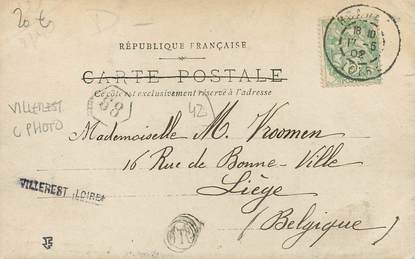 20 €
RÉPUBLIQUE FRANÇAISE
CARTE POSTALE
Ce côté est exclusivement réservé à l'adresse
68
42
VILLEREST
C PHOTO
Mademoiselle M. Vroomen
16 Rue de Bonne-Ville
Liège
(Belgique)
VILLEREST (LOIRE)